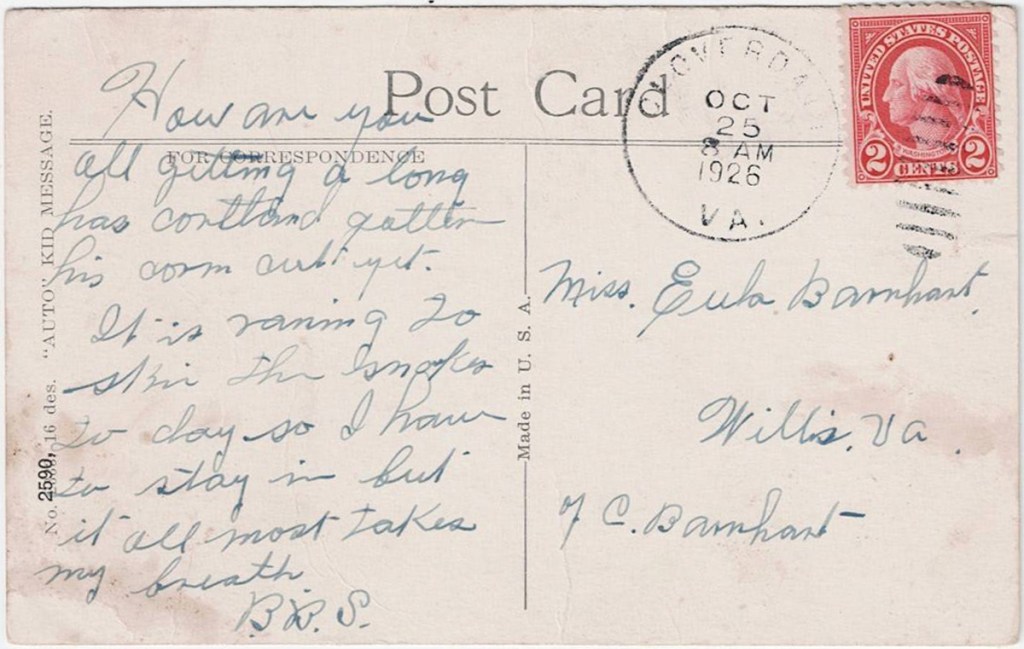 Post Card
FOR CORRESPONDENCE
How are you
all getting a long
has cortland gotten
his corn cut yet.
It is raning to
skin the snakes
to day so I have
to stay in but
it all most takes
my breath
B.B.S.
No. 2590, 16 des. "AUTO" KID MESSAGE.
Made in U. S. A.
OCT
25
8 AM
1926
VA.
UNITED STATES POSTAGE
WASHINGTON
2 CENTS 2
Miss. Eula Barnhart
Willis, Va
C. Barnhart